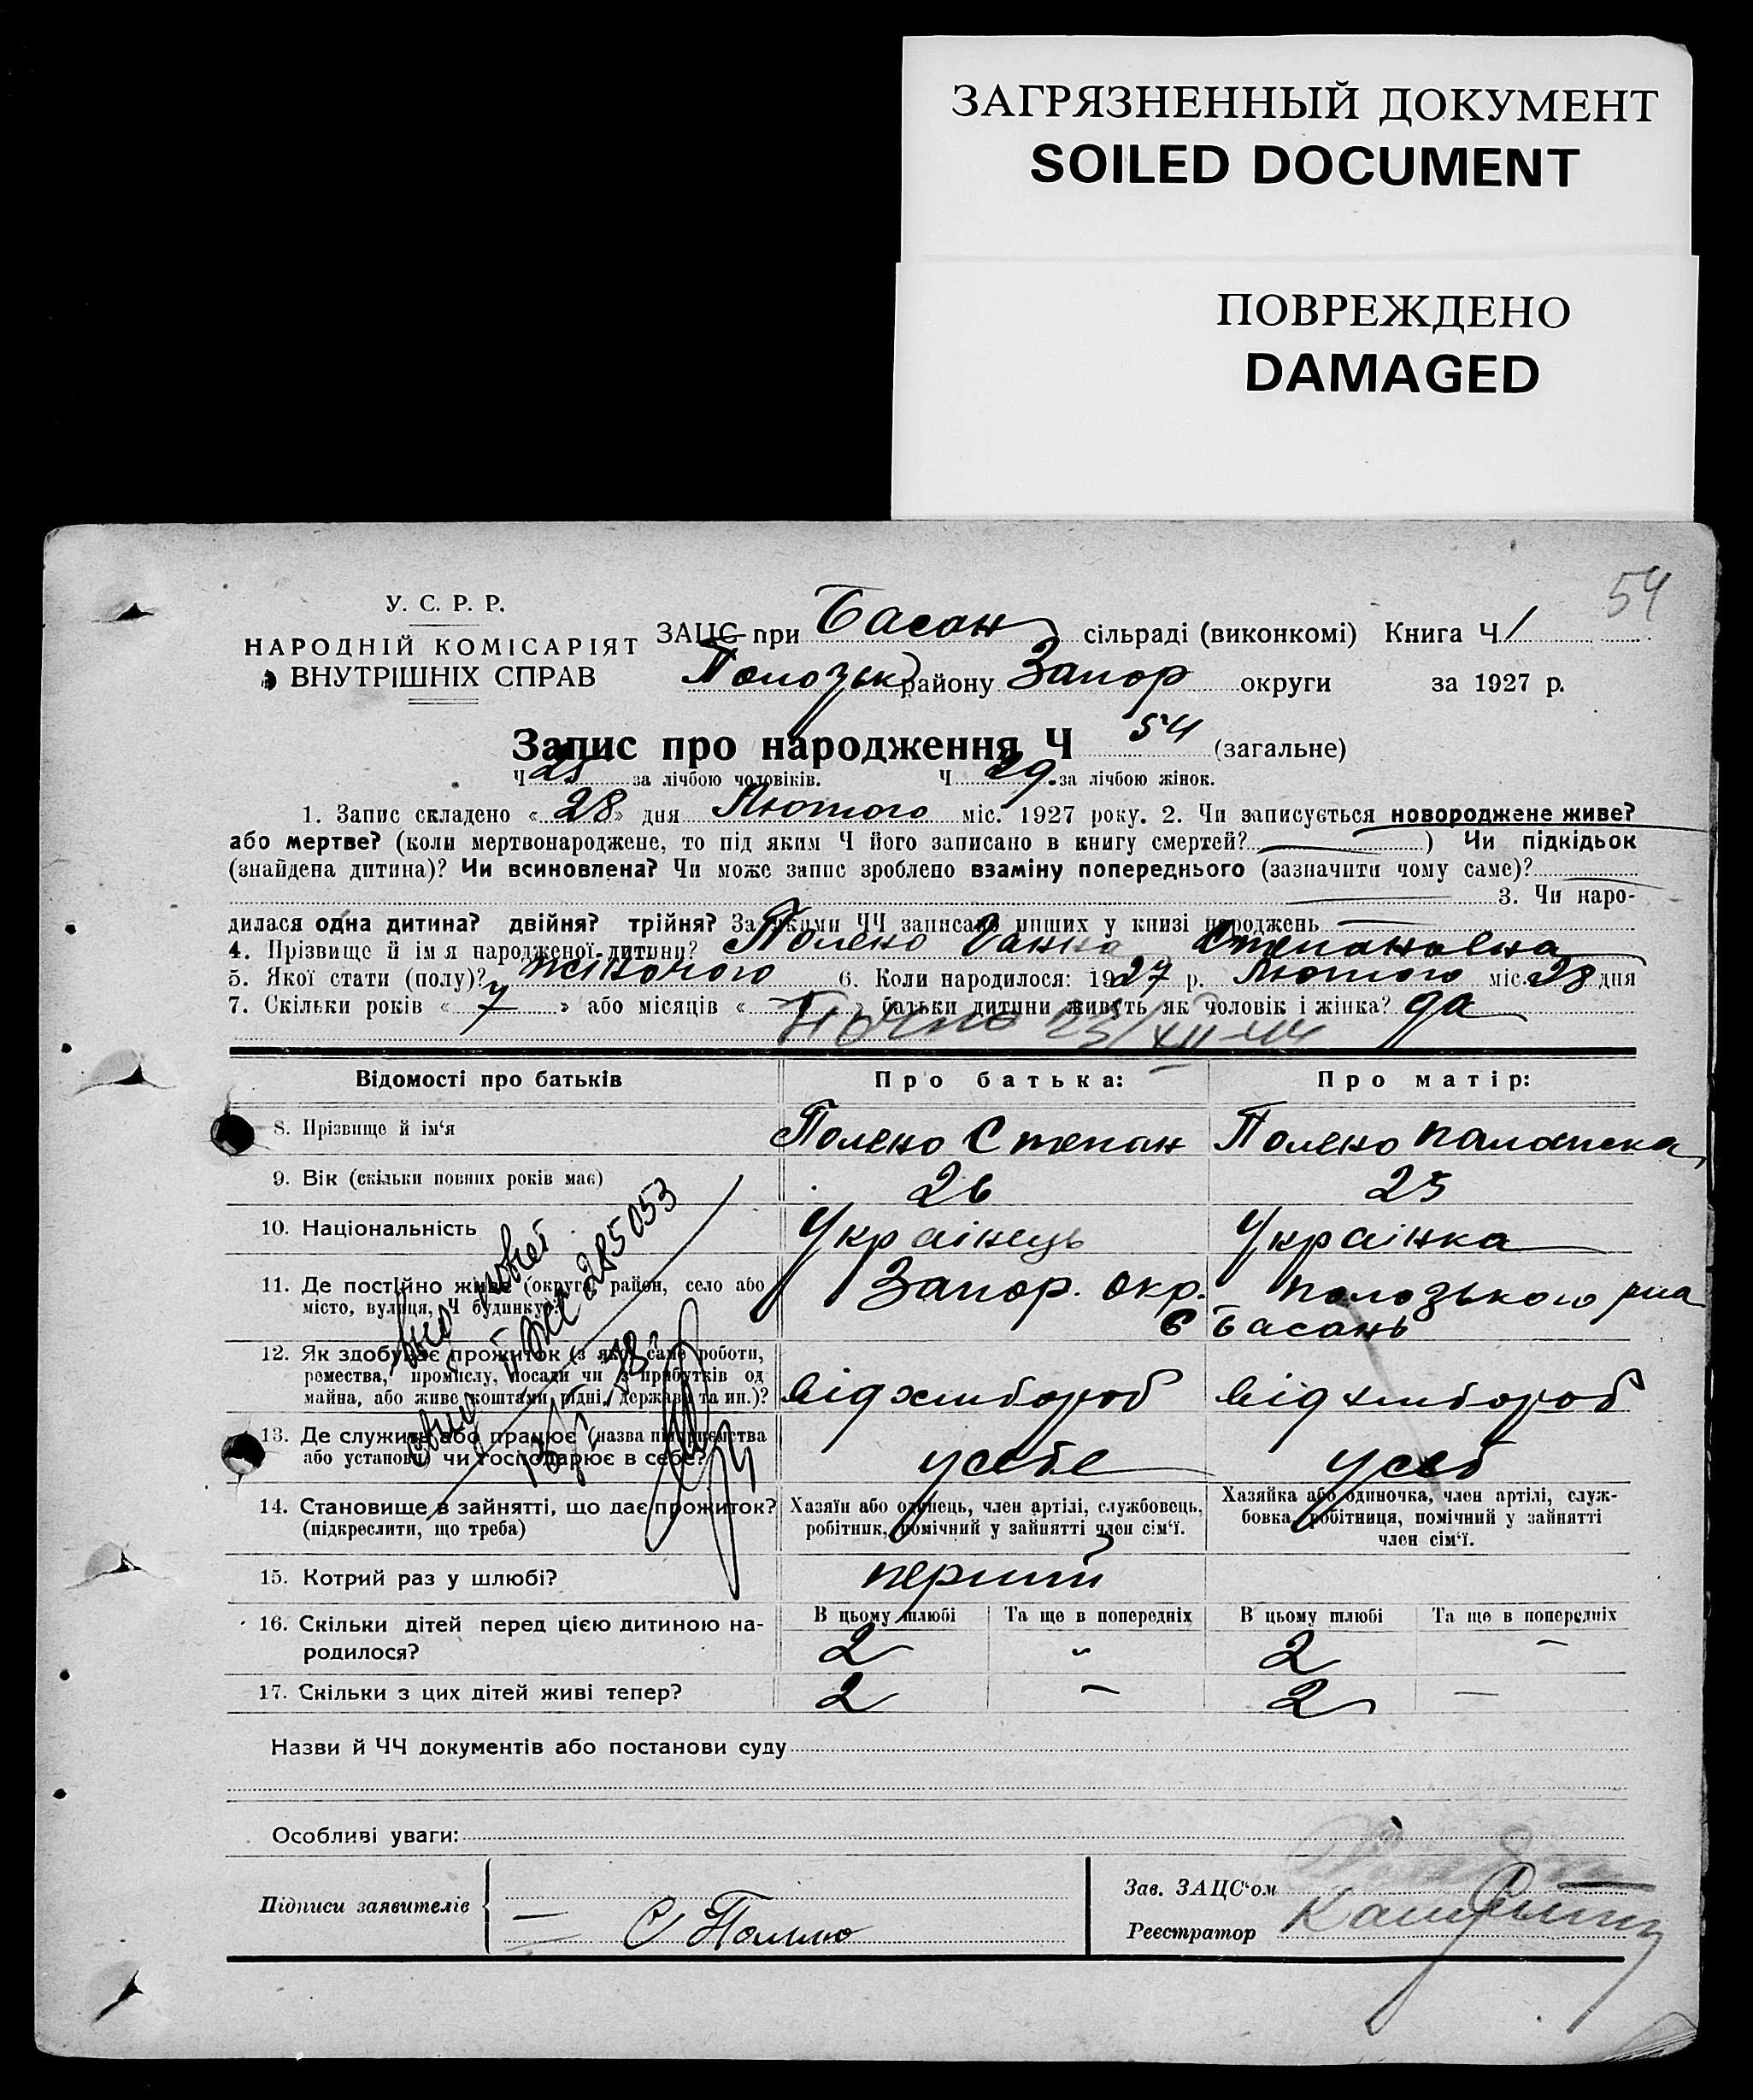 ЗАГРЯЗНЕННЫЙ ДОКУМЕНТ
SOILED DOCUMENT
ПОВРЕЖДЕНО
DAMAGED
54
У. С. Р. Р.
НАРОДНІЙ КОМІСАРІЯТ
ВНУТРІШНІХ СПРАВ
ЗАЦС при Басан сільраді (виконкомі) Книга Ч. 1
Полозьк району Запор округи за 1927 р.
Запис про народження Ч 54 (загальне)
Ч 25 за лічбою чоловіків. Ч 29 за лічбою жінок.
1. Запис складено « 28 » дня Лютого міс. 1927 року. 2. Чи записується новороджене живе?
або мертве? (коли мертвонароджене, то під яким Ч його записано в книгу смертей? ) Чи підкідьок
(знайдена дитина)? Чи всиновлена? Чи може запис зроблено взаміну попереднього (зазначити чому саме)?
3. Чи наро-
дилася одна дитина? двійня? трійня? За якими ЧЧ записано инших у книзі народжень
4. Прізвище й ім я народженої дитини? Полено Ганна Степановна
5. Якої стати (полу)? жіночого 6. Коли народилося: 1927 р. Лютого міс. 28 дня
7. Скільки років « 7 » або місяців « » батьки дитини живуть як чоловік і жінка? да
23/XII-44
Відомості про батьків Про батька: Про матір:
8. Прізвище й ім‘я Полено Степан Полено Палажка
9. Вік (скільки повних років має) 26 25
10. Національність Українець Українка
11. Де постійно живе (округа, район, село або Запор. окр. Полозького рна
місто, вулиця, Ч будинку)? с Басань
12. Як здобуває прожиток (з якої саме роботи,
ремества, промислу, посади чи з прибутків од
майна, або живе коштами рідні, держави та ин.)? від хлибороб від хлибороб
13. Де служить або працює (назва підприємства
або установи) чи господарює в себе? усебе усеб
14. Становище в зайнятті, що дає прожиток? Хазяїн або одинець, член артілі, службовець, Хазяйка або одиночка, член артілі, служ-
(підкреслити, що треба) робітник, помічний у зайнятті член сім‘ї. бовка, робітниця, помічний у зайнятті
член сім‘ї.
15. Котрий раз у шлюбі? перший
16. Скільки дітей перед цією дитиною на- В цьому шлюбі Та ще в попередніх В цьому шлюбі Та ще в попередніх
родилося? 2 „ 2 —
17. Скільки з цих дітей живі тепер? 2 — 2 —
285053
Назви й ЧЧ документів або постанови суду
Особливі уваги:
Підписи заявителів
С Полено
Зав. ЗАЦС‘ом
Реєстратор